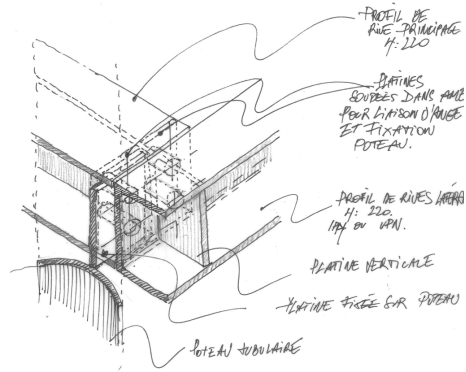 PROFIL DE
RIVE PRINCIPALE
H: 220
PLATINES
SOUDÉES DANS AME
POUR LIAISON D'ANGLE
ET FIXATION
POTEAU.
PROFIL DE RIVES LATÉRA
H: 220.
OU UPN.
PLATINE VERTICALE
PLATINE FIXÉE SUR POTEAU
POTEAU TUBULAIRE